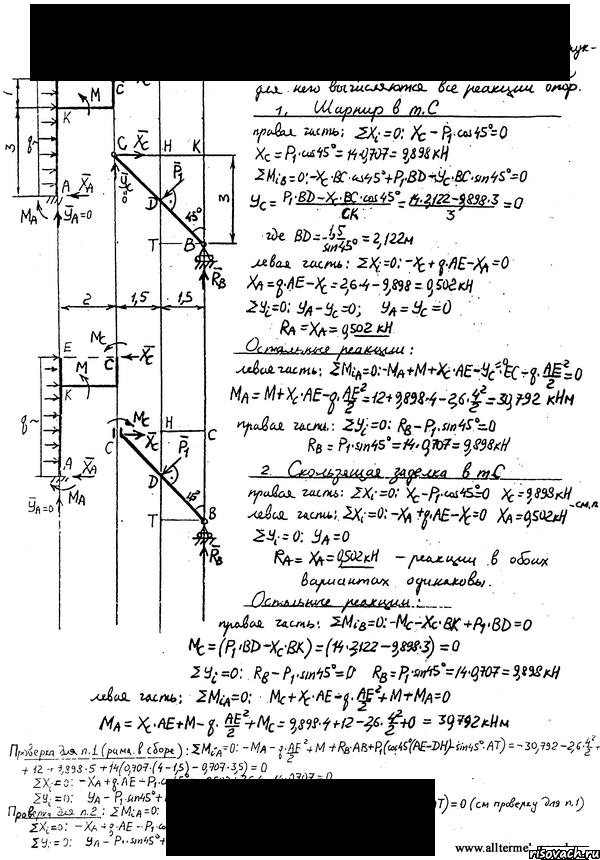 для него вычисляются все реакции опор.
1. Шарнир в т.С
правая часть: ΣXi=0: Xc-P1·cos45°=0
Xc=P1·cos45°=14·0,707=9,898кН
ΣMiB=0:-Xc·BC·cos45°+P1·BD-Yc·BC·sin45°=0
Yc=(P1·BD-Xc·BC·cos45°)/CK=(14·2,122-9,898·3)/3=0
где BD=1,5/sin45°=2,122м
левая часть: ΣXi=0:-Xc+q·AE-XA=0
XA=q·AE-Xc=2,6·4-9,898=0,502кН
ΣYi=0: YA-Yc=0; YA=Yc=0
RA=XA=0,502кН
Остальные реакции:
левая часть: ΣMiA=0:-MA+M+Xc·AE-Yc·EC-q·AE²/2=0
MA=M+Xc·AE-q·AE²/2=12+9,898·4-2,6·4²/2=30,792 кНм
правая часть: ΣYi=0: RB-P1·sin45°=0
RB=P1·sin45°=14·0,707=9,898кН
2. Скользящая заделка в т.С
правая часть: ΣXi=0: Xc-P1·cos45°=0 Xc=9,898кН
левая часть: ΣXi=0: -XA+q·AE-Xc=0 XA=0,502кН -см.п
ΣYi=0: YA=0
RA=XA=0,502кН - реакции в обоих
вариантах одинаковы.
Остальные реакции:
правая часть: ΣMiB=0:-Mc-Xc·BK+P1·BD=0
Mc=(P1·BD-Xc·BK)=(14·2,122-9,898·3)=0
ΣYi=0: RB-P1·sin45°=0 RB=P1·sin45°=14·0,707=9,898кН
левая часть: ΣMiA=0: Mc+Xc·AE-q·AE²/2+M+MA=0
MA=Xc·AE+M-q·AE²/2+Mc=9,898·4+12-2,6·4²/2+0=30,792кНм
Проверка для п.1 (рама в сборе): ΣMiA=0: -MA-q·AE²/2+M+RB·AB+P1(cos45°(AE-DH)-sin45°·AT)=-30,792-2,6·4²/2+
+12+9,898·5+14(0,707·(4-1,5)-0,707·3,5)=0
ΣXi=0: -XA+q·AE-P1
ΣYi=0: YA-P1·sin45°+
T)=0 (см проверку для п.1)
Проверка для п.2: ΣMiA=0:
ΣXi=0: -XA+q·AE-P1·co
ΣYi=0: YA-P1·sin45°+
M
C
K
1
3
q
A
XA
MA
YA=0
C
Xc
H
K
Yc
P1
D
3
45°
T
B
RB
2
1,5
1,5
E
Mc
C
Xc
M
K
q
A
XA
MA
YA=0
Mc
Xc
C
H
C
P1
D
45°
T
B
RB
www.allterme
risovach.ru